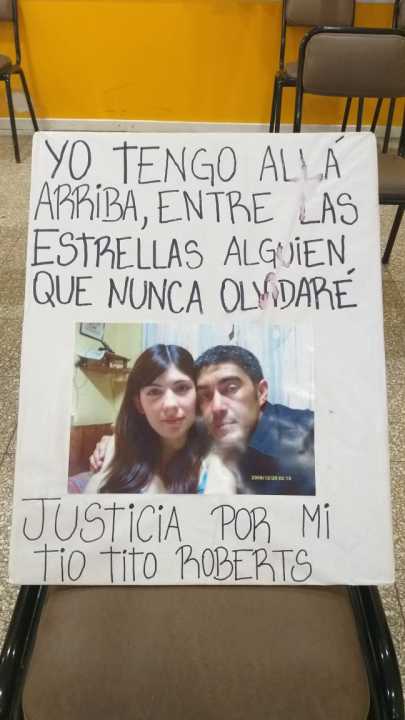 YO TENGO ALLÁ
ARRIBA, ENTRE LAS
ESTRELLAS ALGUIEN
QUE NUNCA OLVIDARÉ
JUSTICIA POR MI
TIO TITO ROBERTS